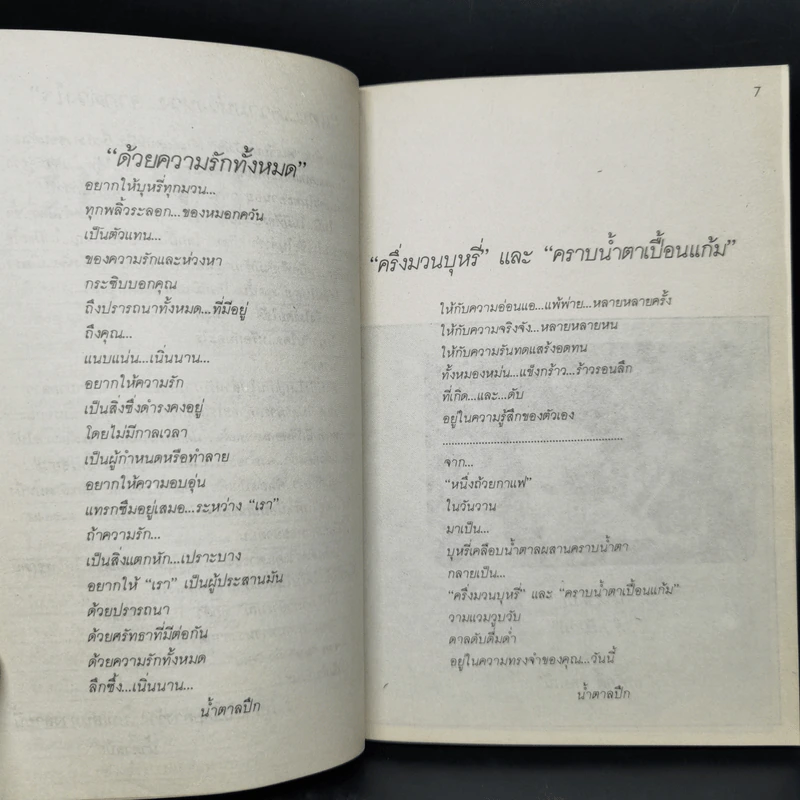 “ด้วยความรักทั้งหมด”
อยากให้บุหรี่ทุกมวน...
ทุกพลิ้วระลอก...ของหมอกควัน
เป็นตัวแทน...
ของความรักและห่วงหา
กระซิบบอกคุณ
ถึงปรารถนาทั้งหมด...ที่มีอยู่
ถึงคุณ...
แนบแน่น...เนิ่นนาน...
อยากให้ความรัก
เป็นสิ่งซึ่งดำรงคงอยู่
โดยไม่มีกาลเวลา
เป็นผู้กำหนดหรือทำลาย
อยากให้ความอบอุ่น
แทรกซึมอยู่เสมอ...ระหว่าง “เรา”
ถ้าความรัก...
เป็นสิ่งแตกหัก...เปราะบาง
อยากให้ “เรา” เป็นผู้ประสานมัน
ด้วยปรารถนา
ด้วยศรัทธาที่มีต่อกัน
ด้วยความรักทั้งหมด
ลึกซึ้ง...เนิ่นนาน...
น้ำตาลปึก
7
“ครึ่งมวนบุหรี่” และ “คราบน้ำตาเปื้อนแก้ม”
ให้กับความอ่อนแอ...แพ้พ่าย...หลายหลายครั้ง
ให้กับความจริงจัง...หลายหลายหน
ให้กับความรันทดแสร้งอดทน
ทั้งหมองหม่น...แข็งกร้าว...ร้าวรอนลึก
ที่เกิด...และ...ดับ
อยู่ในความรู้สึกของตัวเอง
............................................................
จาก...
“หนึ่งถ้วยกาแฟ”
ในวันวาน
มาเป็น...
บุหรี่เคลือบน้ำตาลผสานคราบน้ำตา
กลายเป็น...
“ครึ่งมวนบุหรี่” และ “คราบน้ำตาเปื้อนแก้ม”
วามแวมวูบวับ
ตาลดับดื่มด่ำ
อยู่ในความทรงจำของคุณ...วันนี้
น้ำตาลปึก